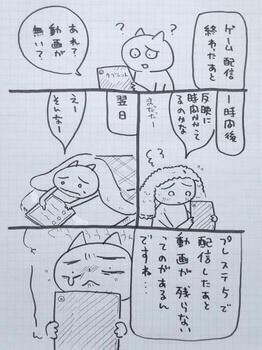 ゲーム配信
終わたあと
あれ？
動画が
無い？
タブレット
一時間後
反映に
時間かかって
るのかな
まだだー
翌日
えー
そんなー
プレステ5で
配信したあと
動画が残らない
てのがあるん
ですね…